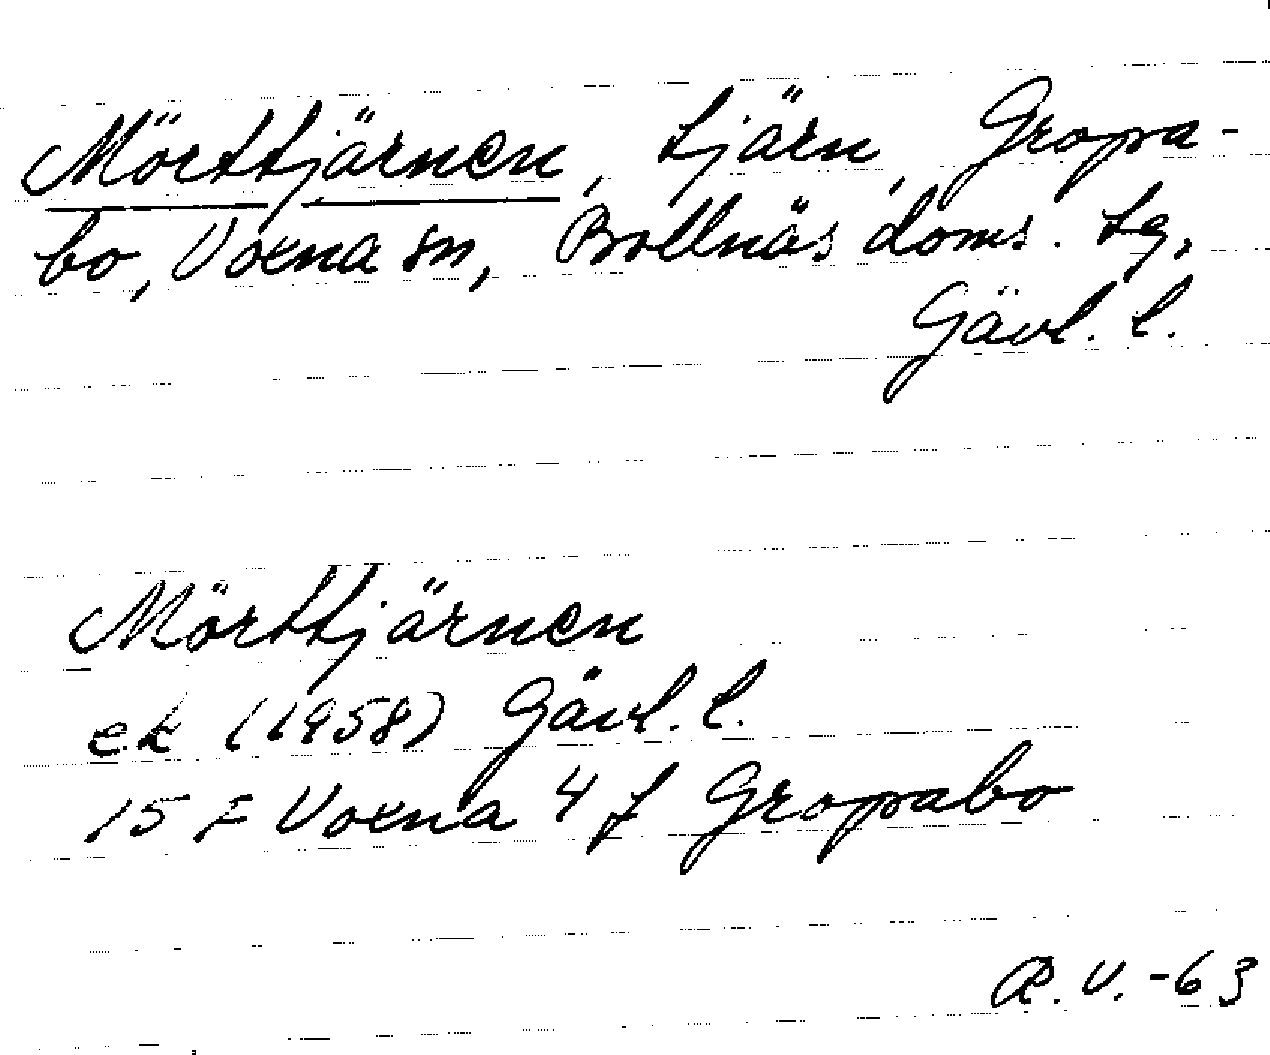 Mörttjärnen, tjärn, Gropa-
bo, Voxna sn, Bollnäs doms. tg,
Gävl. l.
Mörttjärnen
ek (1958) Gävl. l.
15 F Voxna 4 f Gropabo
R. V. -63